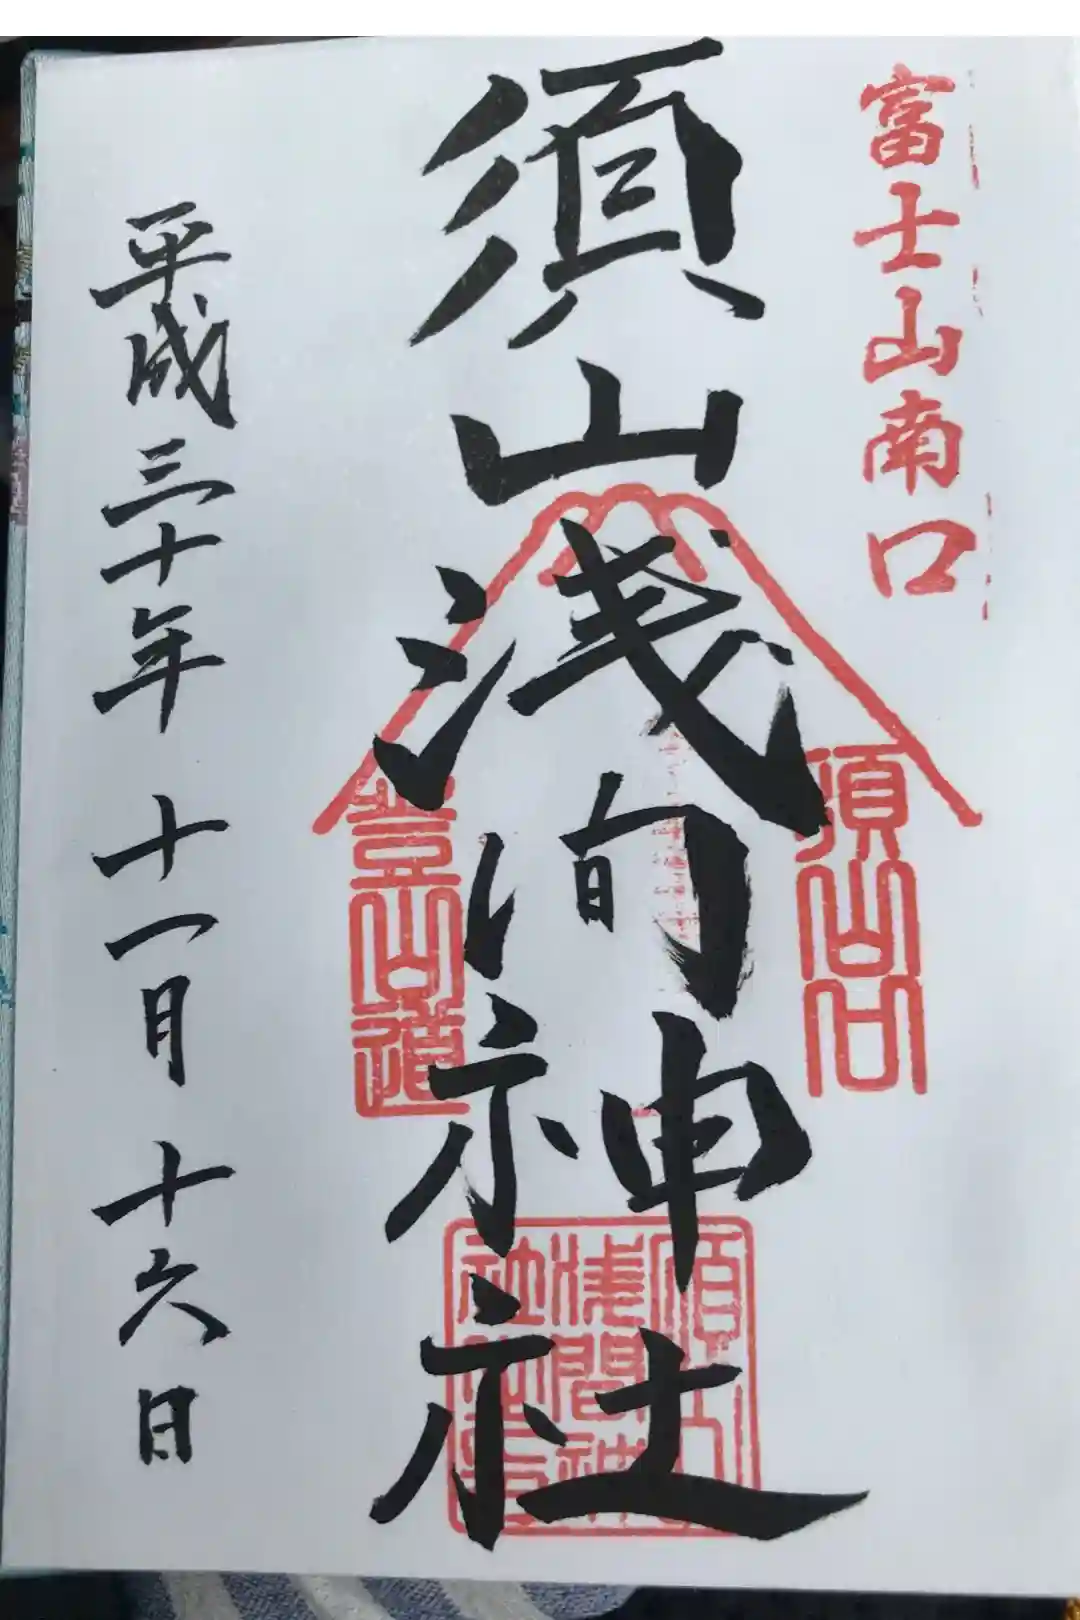 富士山南口
須山浅間神社
須山口
登山道
須山浅間神社之印
平成三十年十一月十六日